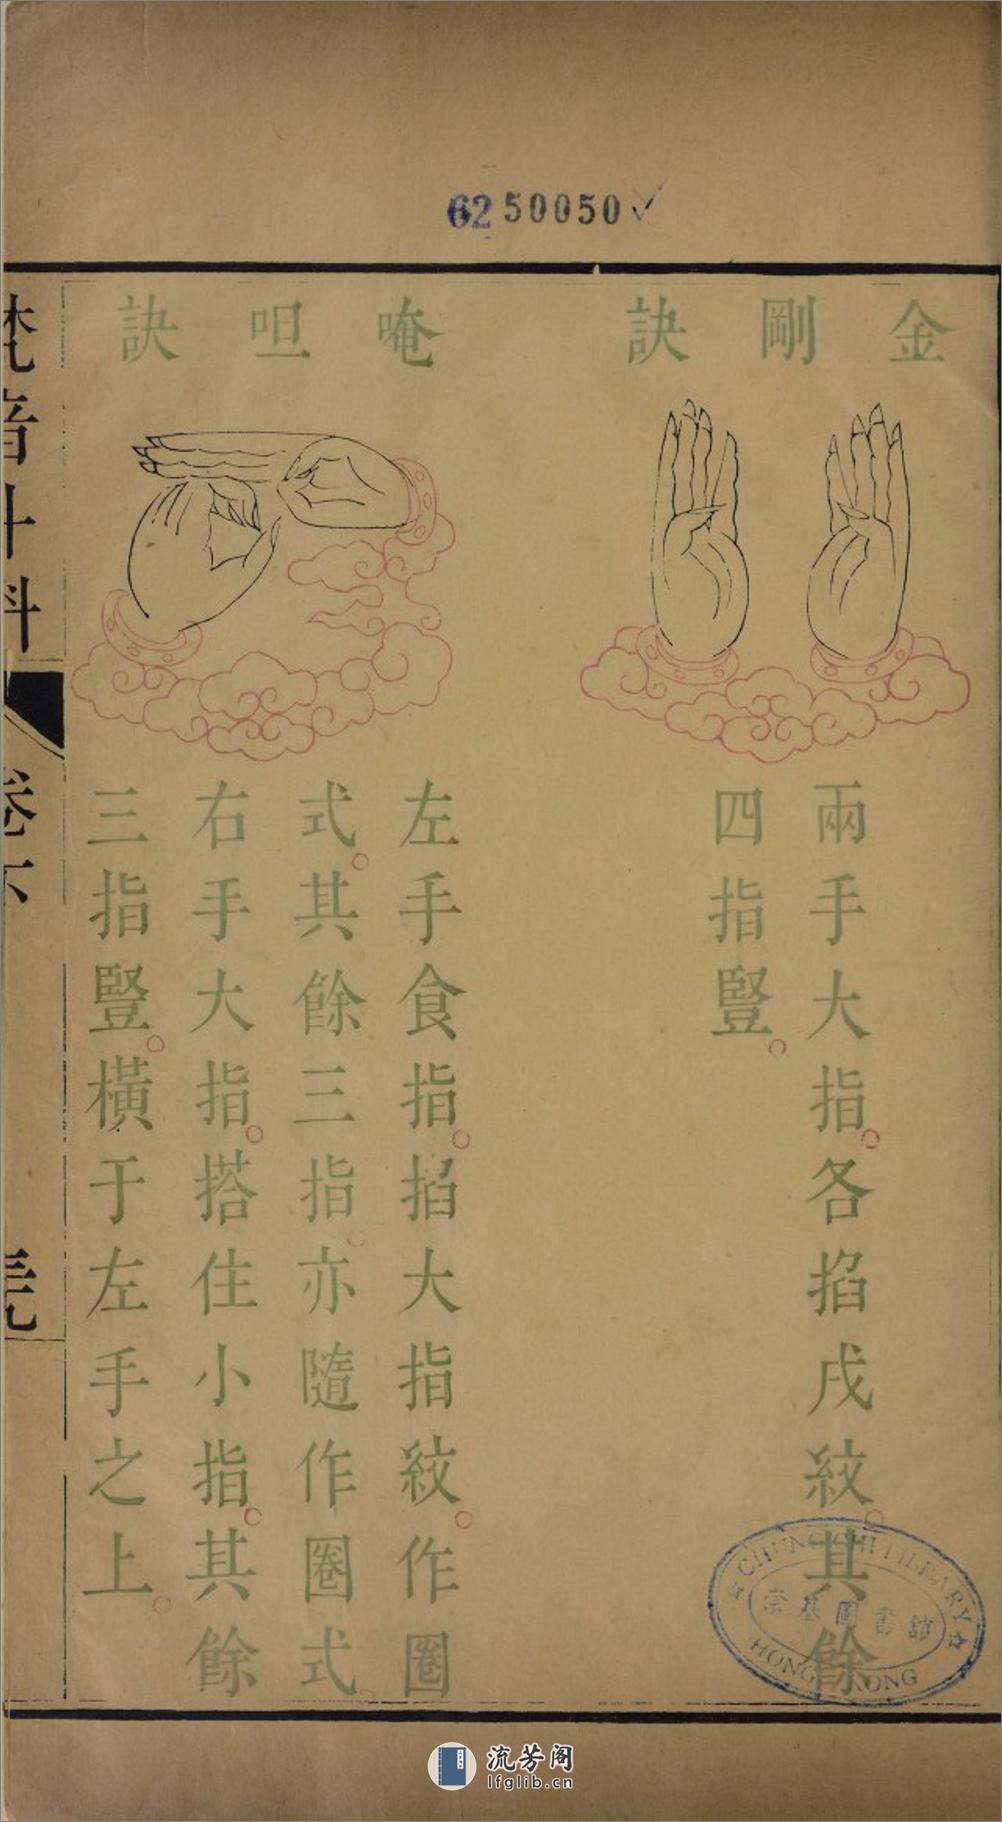 6250050
金剛訣
兩手大指。各掐戌紋。其餘
四指豎。
唵呾訣
左手食指。掐大指紋。作圈
式。其餘三指。亦隨作圈式。
右手大指。搭住小指。其餘
三指豎。橫于左手之上。
梵音斗科
卷下
CHUNG CHI LIBRARY
崇基圖書館
HONG KONG
流芳阁
lfglib.cn